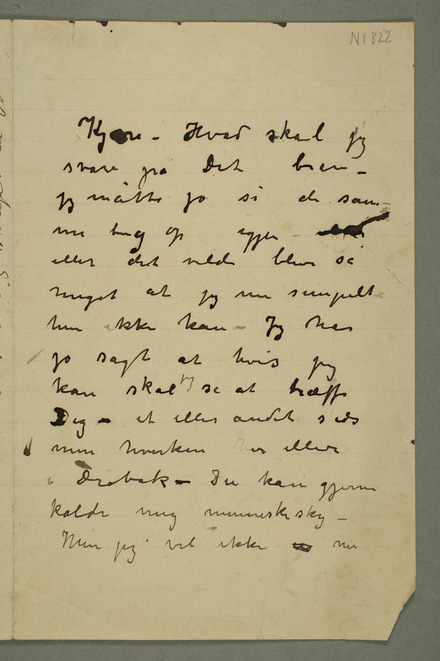 N 1822
Kjære – Hvad skal jeg
svare på det brev –
jeg måtte jo si de sam
me ting op igjen –
eller det vilde bleve så
meget at jeg nu simpelt
hen ikke kan – Jeg har
jo sagt at hvis jeg
kan skal jeg se at træffe
Dig – et eller andet steds
men hverken her eller
i Drøbak – Du kan gjerne
kalde mig menneskesky –
Men jeg vil ikke nu